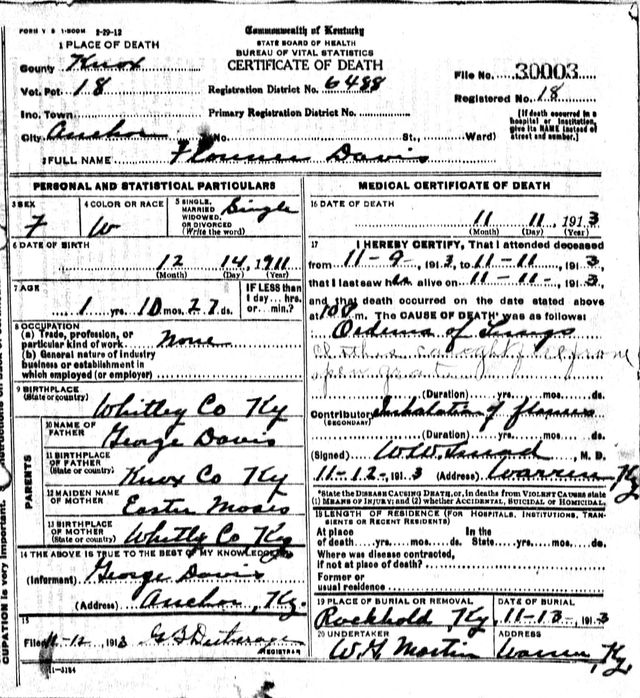 FORM V S 1-500M 2-29-12
Commonwealth of Kentucky
STATE BOARD OF HEALTH
BUREAU OF VITAL STATISTICS
CERTIFICATE OF DEATH
1 PLACE OF DEATH
County Knox
Vot. Pct. 18
Inc. Town
City Anchor No. St., Ward)
Registration District No. 6488
Primary Registration District No.
File No. 30003
Registered No. 18
[If death occurred in a hospital or institution, give its NAME instead of street and number.]
2 FULL NAME Davis
PERSONAL AND STATISTICAL PARTICULARS
3 SEX F
4 COLOR OR RACE W
5 SINGLE, MARRIED, WIDOWED, OR DIVORCED (Write the word) Single
6 DATE OF BIRTH
12 14, 1911
(Month) (Day) (Year)
7 AGE
1 yrs. 10 mos. 27 ds.
IF LESS than 1 day... hrs. or... min.?
8 OCCUPATION
(a) Trade, profession, or particular kind of work None
(b) General nature of industry business or establishment in which employed (or employer)
9 BIRTHPLACE
(State or country) Whitley Co Ky
PARENTS
10 NAME OF FATHER George Davis
11 BIRTHPLACE OF FATHER (State or country) Knox Co Ky
12 MAIDEN NAME OF MOTHER Easter Moses
13 BIRTHPLACE OF MOTHER (State or country) Whitly Co Ky
14 THE ABOVE IS TRUE TO THE BEST OF MY KNOWLEDGE
(Informant) George Davis
(Address) Anchor, Ky.
15
Filed 11-12, 1913
REGISTRAR
11-3184
MEDICAL CERTIFICATE OF DEATH
16 DATE OF DEATH
11 11, 1913
(Month) (Day) (Year)
17 I HEREBY CERTIFY, That I attended deceased
from 11-9, 1913, to 11-11, 1913,
that I last saw her alive on 11-11-, 1913,
and that death occurred on the date stated above
at m. The CAUSE OF DEATH was as follows:
Oedema of Lungs
(Duration) yrs. mos. ds.
Contributory Inhalation of flames
(SECONDARY)
(Duration) yrs. mos. ds.
(Signed) M. D.
11-12-, 1913 (Address) Warren, Ky
*State the DISEASE CAUSING DEATH, or, in deaths from VIOLENT CAUSES state
(1) MEANS OF INJURY; and (2) whether ACCIDENTAL, SUICIDAL or HOMICIDAL.
18 LENGTH OF RESIDENCE (FOR HOSPITALS, INSTITUTIONS, TRANSIENTS OR RECENT RESIDENTS)
At place of death yrs. mos. ds. In the State yrs. mos. ds.
Where was disease contracted, if not at place of death?
Former or usual residence
19 PLACE OF BURIAL OR REMOVAL
Rockhold Ky
DATE OF BURIAL
11-13-, 1913
20 UNDERTAKER
W. H. Martin
ADDRESS
Warren, Ky.
CUPATION is very important.